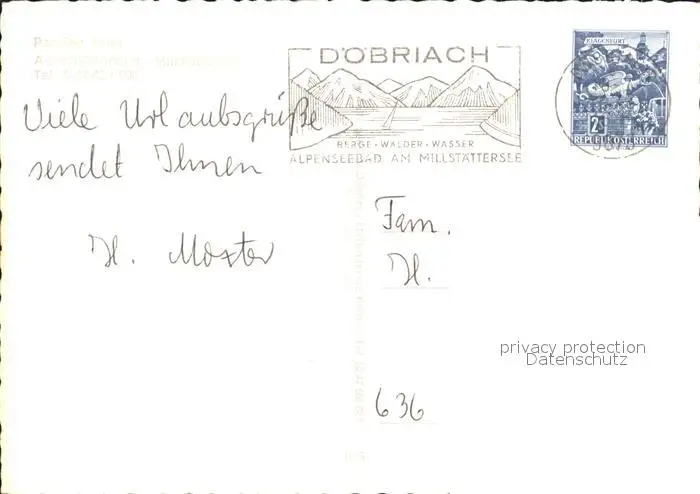 DÖBRIACH
BERGE · WÄLDER · WASSER
ALPENSEEBAD AM MILLSTÄTTERSEE
KLAGENFURT
2S
REPUBLIK ÖSTERREICH
Viele Urlaubsgrüße
sendet Ihnen
H. Moxter
Fam.
H.
636
privacy protection
Datenschutz